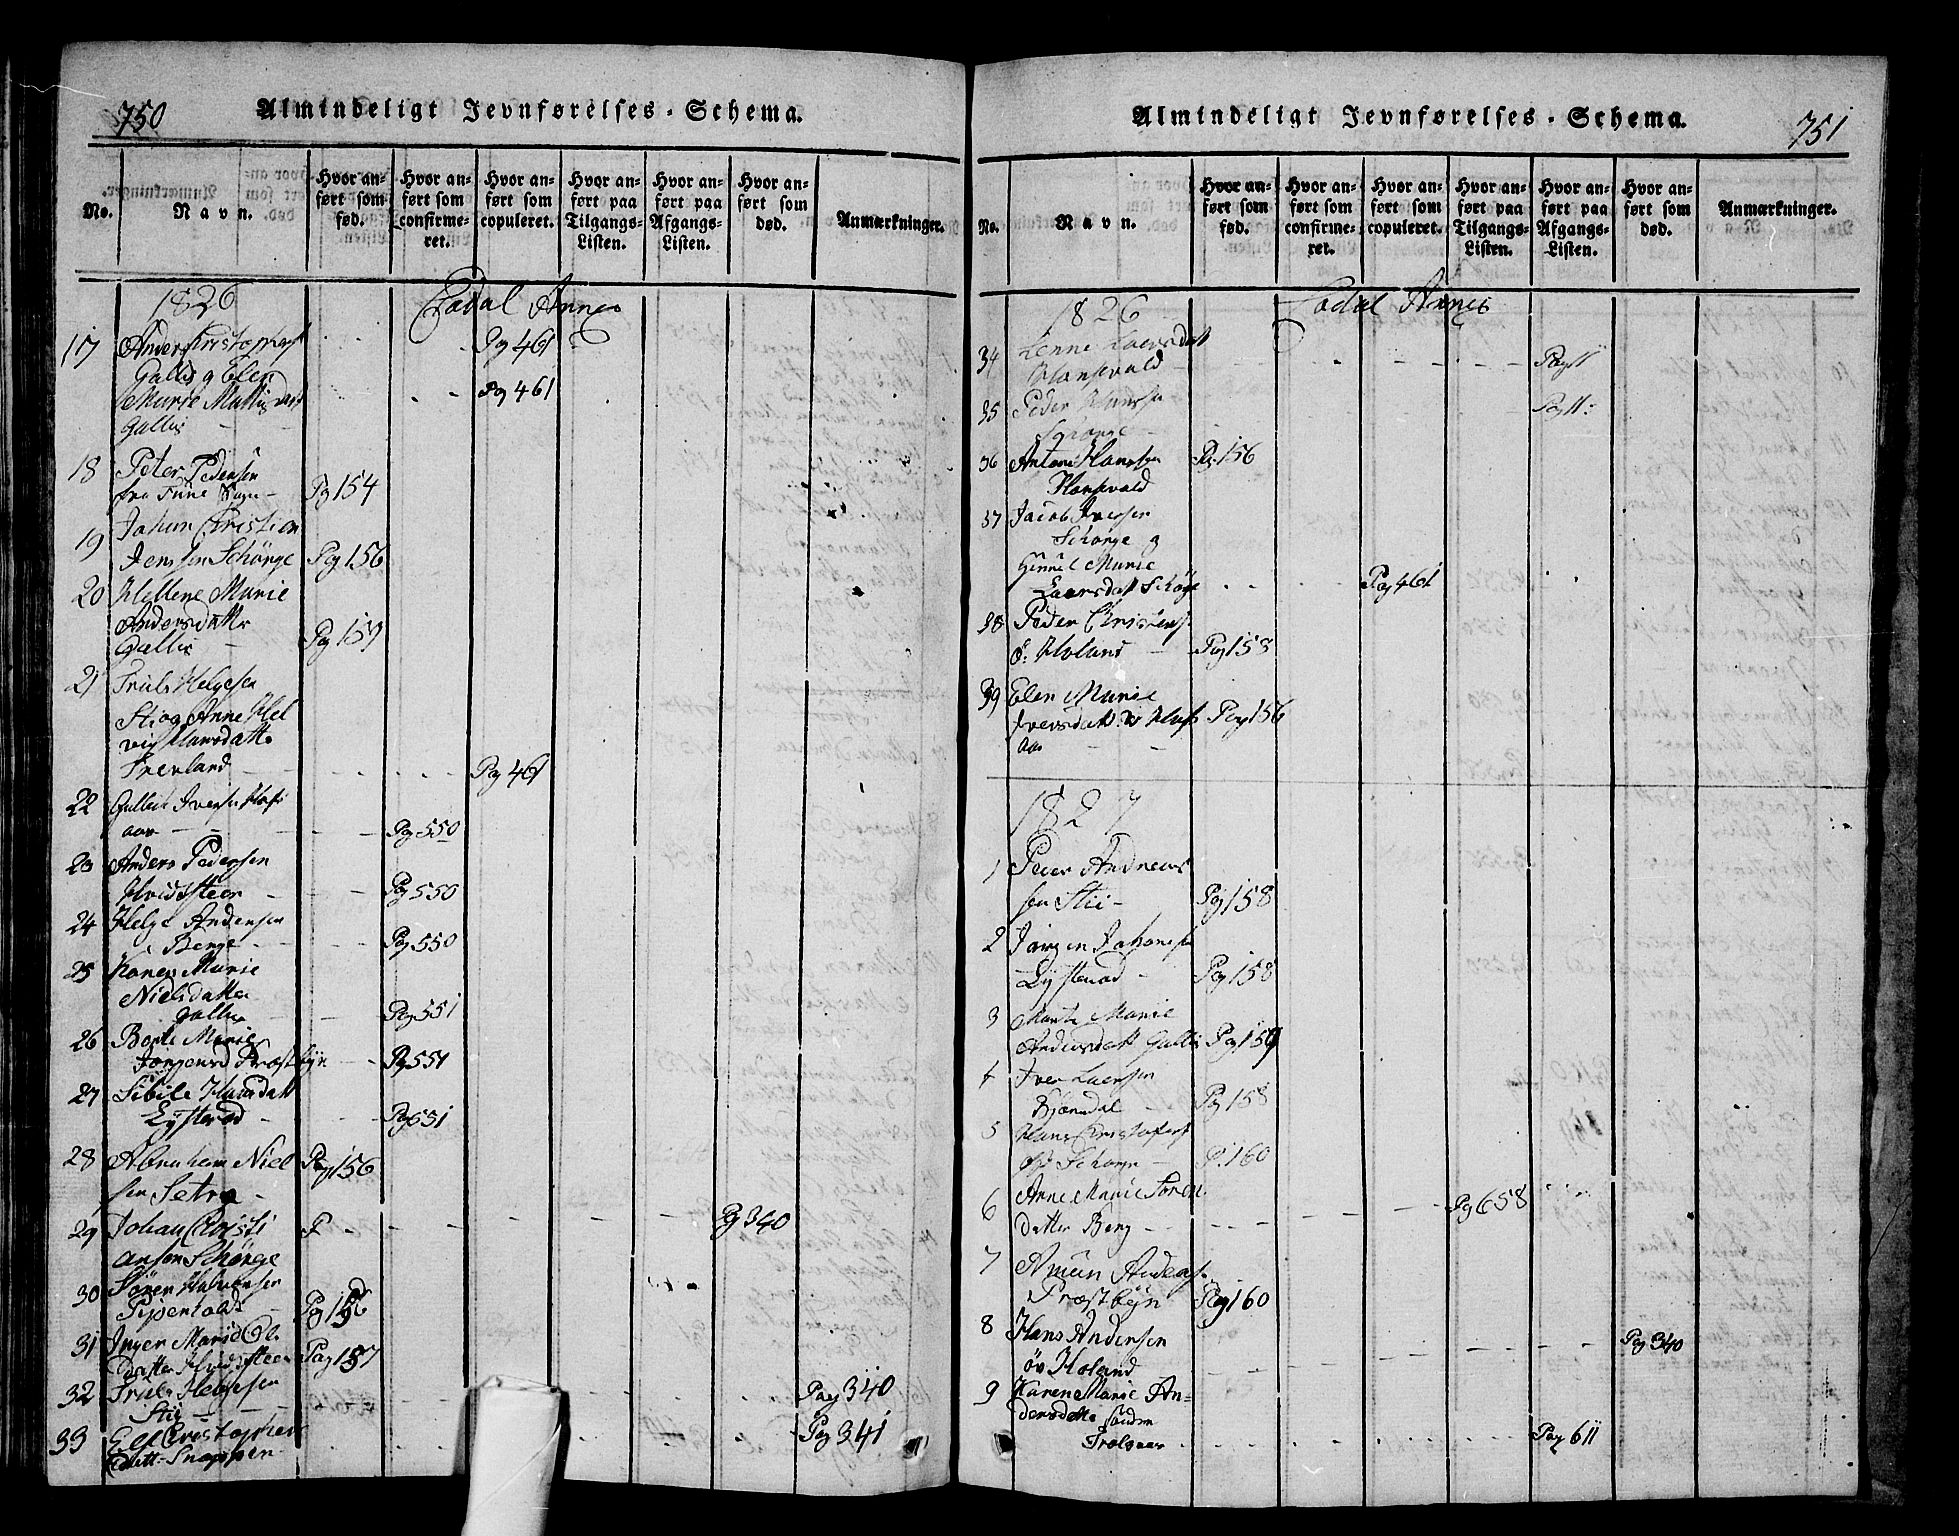 750
Almindeligt Jevnførelses-Schema.
No.
Navn.
Hvor anført som fød.
Hvor anført som confirmeret.
Hvor anført som copuleret.
Hvor anført paa Tilgangs-Listen.
Hvor anført paa Afgangs-Listen.
Hvor anført som død.
Anmærkninger.
1826
17 Anders Cristophers
Galbis g Elen Pg 461
Marie Mattisdatt Pg 461
Galbis
18 Peter Pedersen
fra Tune Sogn Pg 154
19 Johan Cristian
Jenssen Schönge Pag 156
20 Hellene Marie
Andersdatter
Galbis Pag 159
21 Truls Helgesen
Stiog Anne Hel
vig Hansdatter
Frenland Pag 461
22 Gulbich Iversen Hafs
aas Pag 550
23 Anders Pedersen
Hvidsteen Pag 550
24 Helge Andersen
Berge Pag 550
25 Karen Marie
Nielsdatter
Galbis Pag 551
26 Borte Marie
Jörgensd Præstbÿn Pag 551
27 Sibile Hansdatt
Lysterod Pag 551
28 Abraham Niel Pag 156
sen Setre
29 Johan Cristi Pg 340
anson Schönge
30 Sören Halvorsen
Pipenholdt Pag 156
31 Inger Marie Ole
Datter Hvidsteen Pag 157
32 Truls Helgesen Pag 340
Stii
33 Ellf Cristophers Pag 341
Datt. Snappen
751
Almindeligt Jevnførelses-Schema.
No.
Navn.
Hvor anført som fød.
Hvor anført som confirmeret.
Hvor anført som copuleret.
Hvor anført paa Tilgangs-Listen.
Hvor anført paa Afgangs-Listen.
Hvor anført som død.
Anmærkninger.
1826
34 Lenne Laersdatt
Hansevald Pag 11
35 Peder Hanssen Pag 11:
Schönge
36 Anton Hanssen Pg. 156
Hansevald
37 Jacob Iversen
Schönge g
Gunnel Marie
Laarsdatt Schöge Pag 461
38 Peder Christens
ö: Holand Pag 158
39 Elen Marie
Iversdatt Hafs Pag 156
aas
1827
1 Peder Andreas
sen Stii Pag 158
2 Jörgen Johanse
Lysterod Pag 158
3 Marte Marie
Andersdatt Galbis Pag 159
4 Iver Laersen
Bjørndal Pag 158
5 Hans Cristofers
Schönge P. 160
6 Anne Marie Sören
datter Berg Pg 658
7 Amun Andeas
Præstbÿn Pag 160
8 Hans Andersen
öv Holand Pag 340
9 Karen Marie An-
dersdatte Söndre
Trolsaas Pag 611